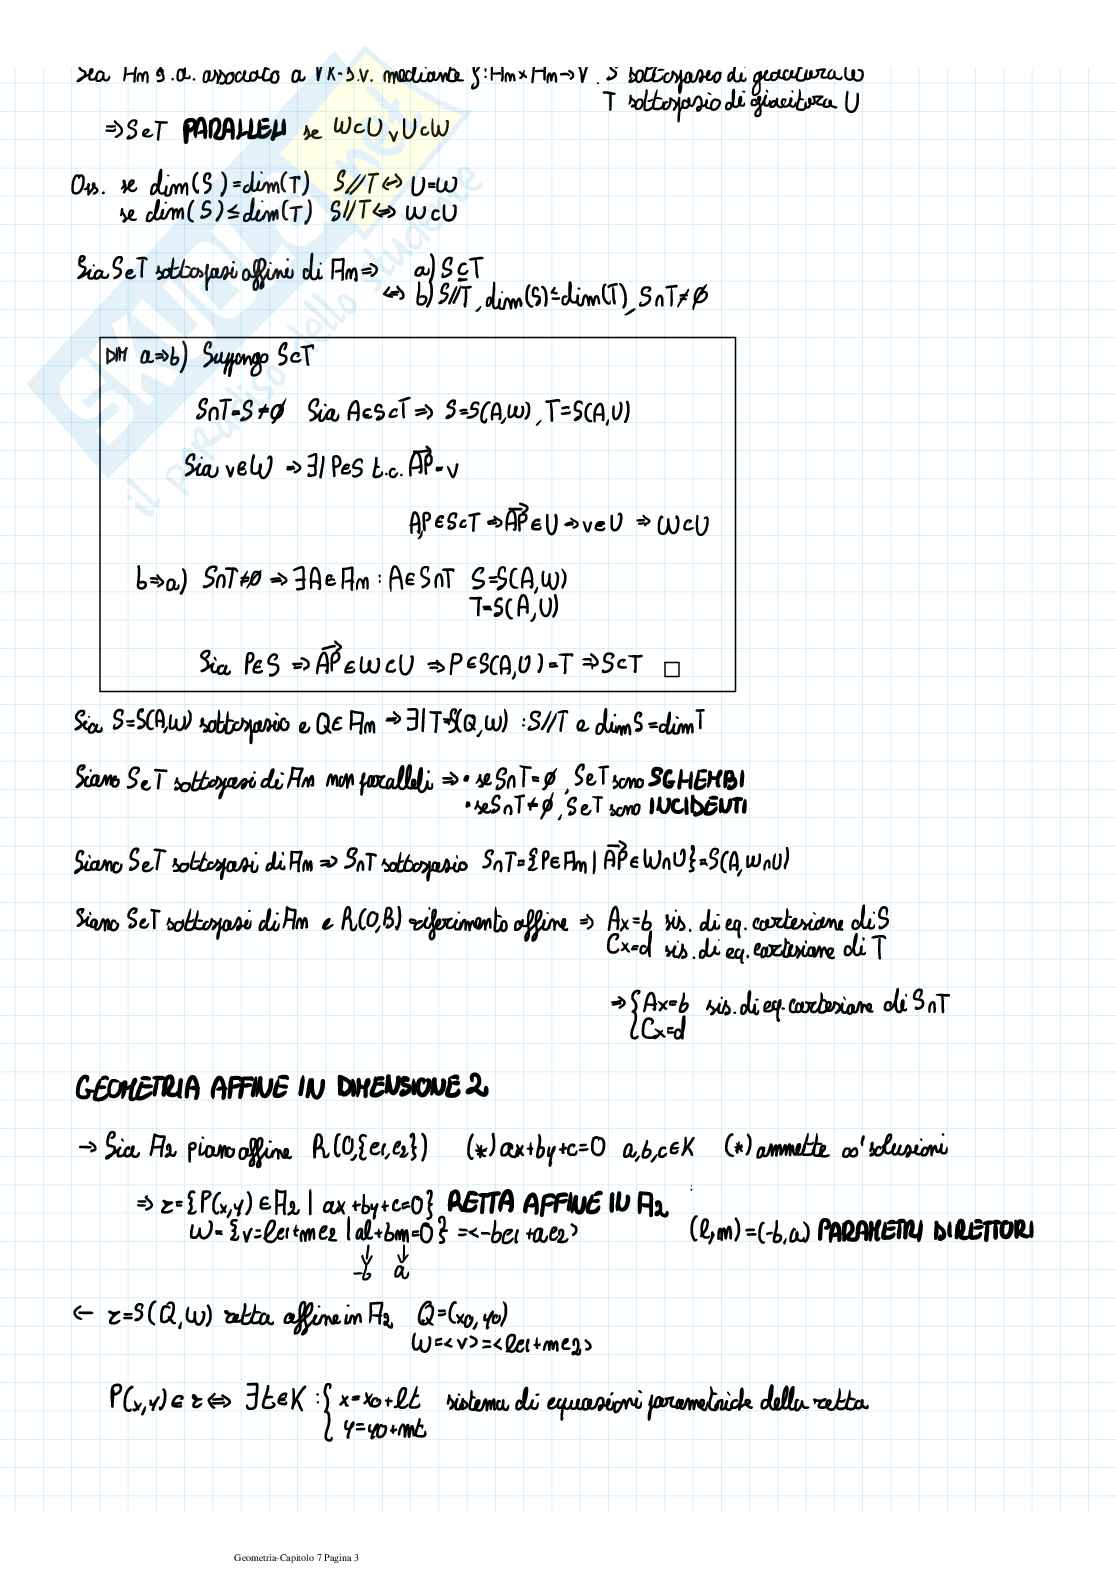 Sia Am s.a. associato a V K-s.v. mediante f: Am×Am→V. S sottospazio di giacitura W
T sottospazio di giacitura U
⇒ S e T PARALLELI se W⊂U ∨ U⊂W
Oss. se dim(S)=dim(T) S//T ⇔ U=W
se dim(S)≤dim(T) S//T ⇔ W⊂U
Sia S e T sottospazi affini di Am ⇒ a) S⊆T
⇔ b) S//T, dim(S)≤dim(T), S∩T≠∅
DIM a⇒b) Suppongo S⊂T
S∩T=S≠∅ Sia A∈S⊂T ⇒ S=S(A,W), T=S(A,U)
Sia v∈W ⇒ ∃! P∈S t.c. AP=v
A,P∈S⊂T ⇒ AP∈U ⇒ v∈U ⇒ W⊂U
b⇒a) S∩T≠∅ ⇒ ∃A∈Am : A∈S∩T S=S(A,W)
T=S(A,U)
Sia P∈S ⇒ AP∈W⊂U ⇒ P∈S(A,U)=T ⇒ S⊂T □
Sia S=S(A,W) sottospazio e Q∈Am ⇒ ∃! T=S(Q,W) : S//T e dimS=dimT
Siano S e T sottospazi di Am non paralleli ⇒ • se S∩T=∅, S e T sono SGHEMBI
• se S∩T≠∅, S e T sono INCIDENTI
Siano S e T sottospazi di Am ⇒ S∩T sottospazio S∩T={P∈Am | AP∈W∩U}=S(A,W∩U)
Siano S e T sottospazi di Am e R(O,B) riferimento affine ⇒ Ax=b sis. di eq. cartesiane di S
Cx=d sis. di eq. cartesiane di T
⇒ { Ax=b sis. di eq. cartesiane di S∩T
Cx=d
GEOMETRIA AFFINE IN DIMENSIONE 2
→ Sia A2 piano affine R(O,{e1,e2}) (*) ax+by+c=0 a,b,c∈K (*) ammette ∞¹ soluzioni
⇒ r={P(x,y)∈A2 | ax+by+c=0} RETTA AFFINE IN A2
W={v=le1+me2 | al+bm=0}=<-be1+ae2> (l,m)=(-b,a) PARAMETRI DIRETTORI
-b a
← r=S(Q,W) retta affine in A2 Q=(x0,y0)
W=<v>=<le1+me2>
P(x,y)∈r ⇔ ∃t∈K : { x=x0+lt sistema di equazioni parametriche della retta
y=y0+mt
Geometria-Capitolo 7 Pagina 3
SKUOLA.net
il paradiso dello studente